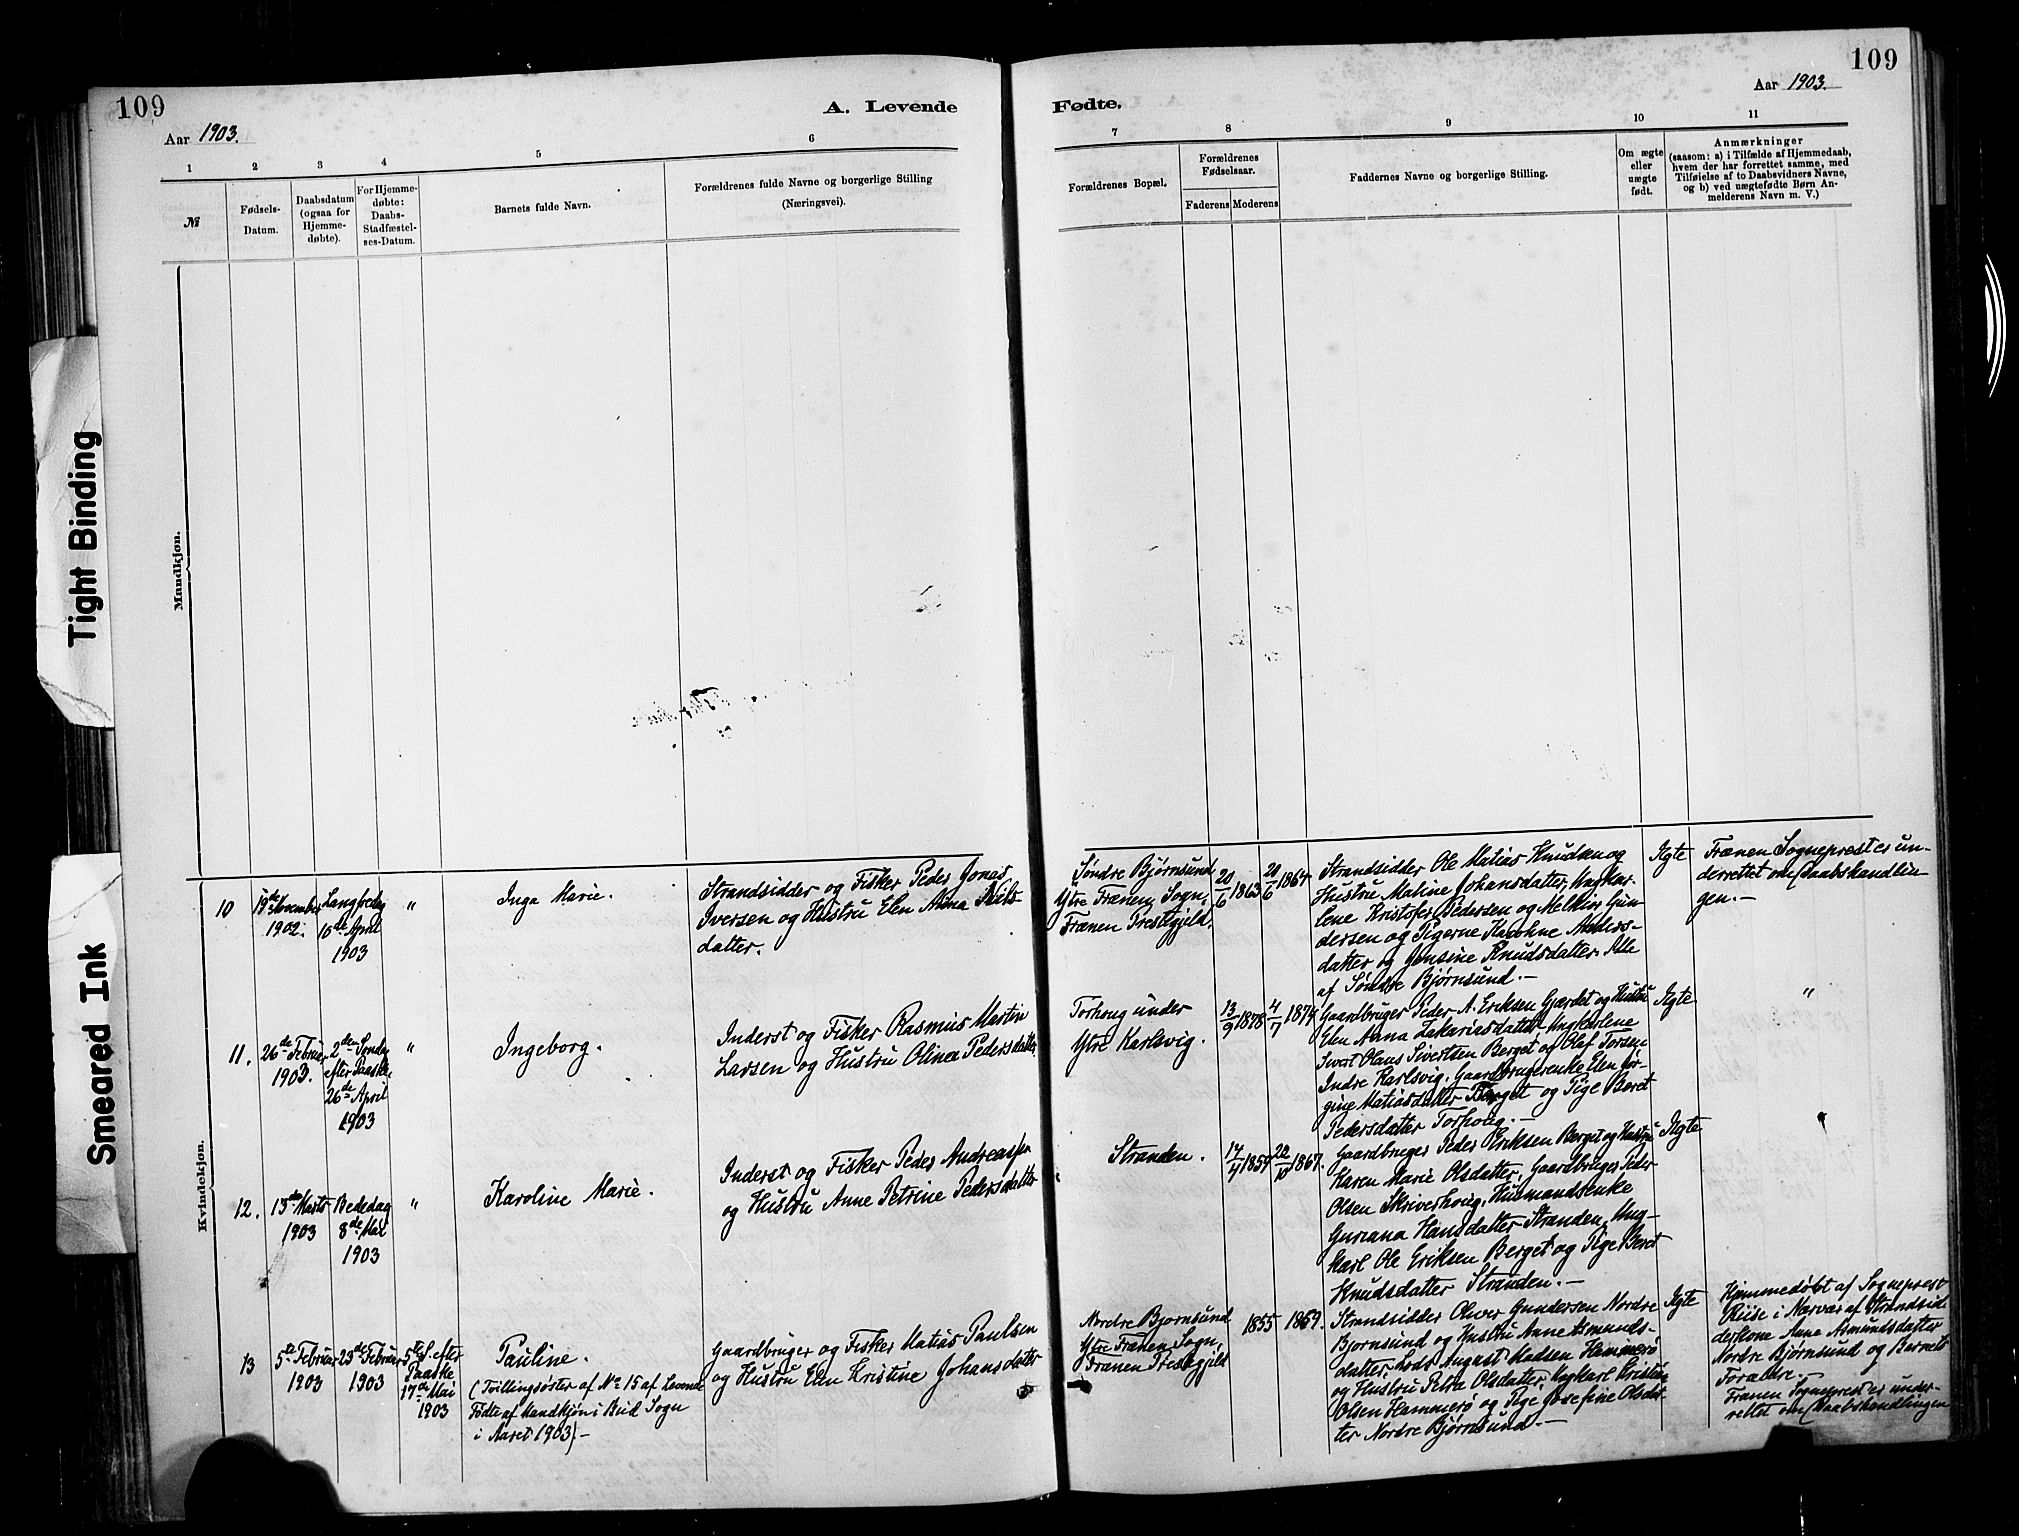 109
A. Levende
Aar 1903.
1 2 3 4 5 6
№
Fødsels-
Datum.
Daabsdatum
(ogsaa for
Hjemme-
døbte).
For Hjemme-
døbte:
Daabs-
Stadfæstel-
ses-Datum.
Barnets fulde Navn.
Forældrenes fulde Navne og borgerlige Stilling
(Næringsvei).
Mandkjøn.
Kvindekjøn.
10
19de November
1902.
Langfredag
10de April
1903
"
Inga Marie.
Strandsidder og Fisker Peder Jonas
Iversen og Hustru Elen Anna
datter.
11.
26de Februar
1903.
2den Sønd.
efter Paaske.
26de April
1903
"
Ingeborg.
Inderst og Fisker Rasmus Martin
Larsen og Hustru Olina Pedersdatter
12.
13de Marts
1903
Bededag
8de Mai
1903
"
Karoline Marie.
Inderst og Fisker Peder Andreassen
og Hustru Anne Petrine Pedersdatter
13
5te Februar
1903
23de Februar
1903
5te S. efter
Paaske
17de Mai
1903
Pauline.
(Tvillingsøster af No 15 af Levende
Fødte af Mandkjøn i Bud Sogn
i Aaret 1903).-
Gaardbruger og Fisker Matias Paulsen
og Hustru Elen Kristine Johansdatter
109
Fødte.
Aar 1903.
7 8 9 10 11
Forældrenes Bopæl.
Forældrenes
Fødselsaar.
Faderens Moderens
Faddernes Navne og borgerlige Stilling.
Om ægte
eller
uægte
født.
Anmærkninger
(saasom: a) i Tilfælde af Hjemmedaab,
hvem der har forrettet samme, med
Tilføielse af to Daabsvidners Navne,
og b) ved uægtefødte Børn An-
melderens Navn m. V.)
Søndre Bjørnsund
Ytre Frænen Sogn,
Frænen Prestegjeld.
20/6 1863
20/6 1864
Strandsidder Ole Matias Knudsen og
Hustru Maline Johansdatter, Ungkar-
lene Kristofer Pedersen og Melkior Gun-
dersen og Pigerne Anders-
datter og Jensine Knudsdatter. Alle
af Søndre Bjørnsund.-
Ægte
Frænen Sogneprest er un-
derrettet om Daabshandlin-
gen.-
Torhoug under
Ytre Karlsvig.
13/9 1878
4/7 1874
Gaardbruger Peder A. Eriksen Gjærdet og Hustru
Elen Anna Zakariasdatter Ungkarlene
Sivert Olaus Sivertsen Berget og Olef Torsen
Indre Karlsvig. Gaardbrugerenke Elen Jør-
gine Matiasdatter Berget og Pige Beret
Pedersdatter Torhoug.-
Ægte
"
Stranden.
17/4 1854
22/10 1867.
Gaardbruger Peder Eriksen Berget og Hustru
Karen Marie Olsdatter, Gaardbruger Peder
Olsen Skriverhoug, Husmandsenke
Guriana Hansdatter Stranden, Ung-
karl Ole Eriksen Berget og Pige Beret
Knudsdatter Stranden.-
Ægte
"
Nordre Bjørnsund
Ytre Frænen Sogn,
Frænen Prestegjeld
1855
1869.
Strandsidder Oliver Gundersen Nordre
Bjørnsund og Hustru Anne Asmunds-
datter, Lods August Madsen Hammerø
og Hustru Petra Olsdatter, Ungkarl Kristian
Olsen Hammerø og Pige Josefine Olsdat-
ter Nordre Bjørnsund.-
Ægte
Hjemmedøbt af Sogneprest
Riise i Nærvær af Strandsid-
derkone Anne Asmundsdatter
Nordre Bjørnsund og Barnets
Forældre.-
Frænen Sogneprest er under-
rettet om Daabshandlingen
Tight Binding
Smeared Ink